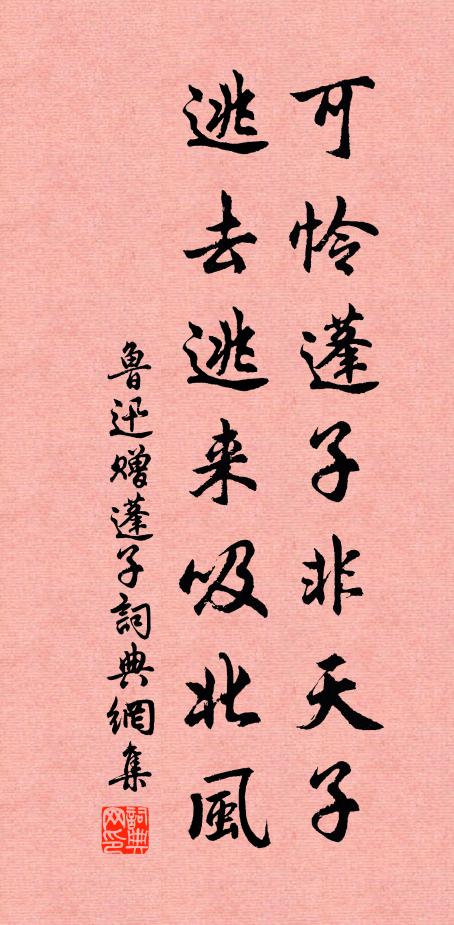 可怜蓬子非天子
逃去逃来吸北風
魯迅贈蓬子詞典網集
詞典网印